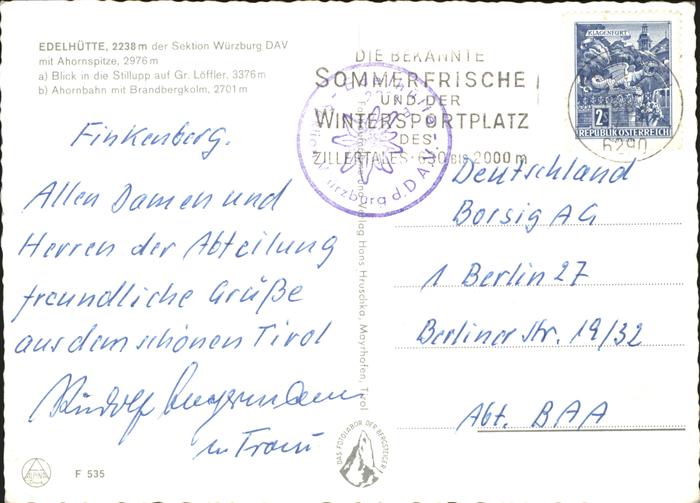 EDELHÜTTE, 2238 m der Sektion Würzburg DAV
mit Ahornspitze, 2976 m
a) Blick in die Stillupp auf Gr. Löffler, 3376 m
b) Ahornbahn mit Brandbergkolm, 2701 m
Finkenberg.
Allen Damen und
Herren der Abteilung
freundliche Grüße
aus dem schönen Tirol
Rudolf
u. Frau
ALPINA
F 535
DIE BEKANNTE
SOMMERFRISCHE
UND DER
WINTERSPORTPLATZ
DES
ZILLERTALES · 630 BIS 2000 m
Würzburg d. D.A.V.
Verlag Hans Hruschka, Mayrhofen, Tirol
DAS FOTOLABOR DER BERGSTEIGER
KLAGENFURT
2S
REPUBLIK ÖSTERREICH
6290
Deutschland
Borsig AG
1 Berlin 27
Berliner Str. 19/32
Abt. BAA